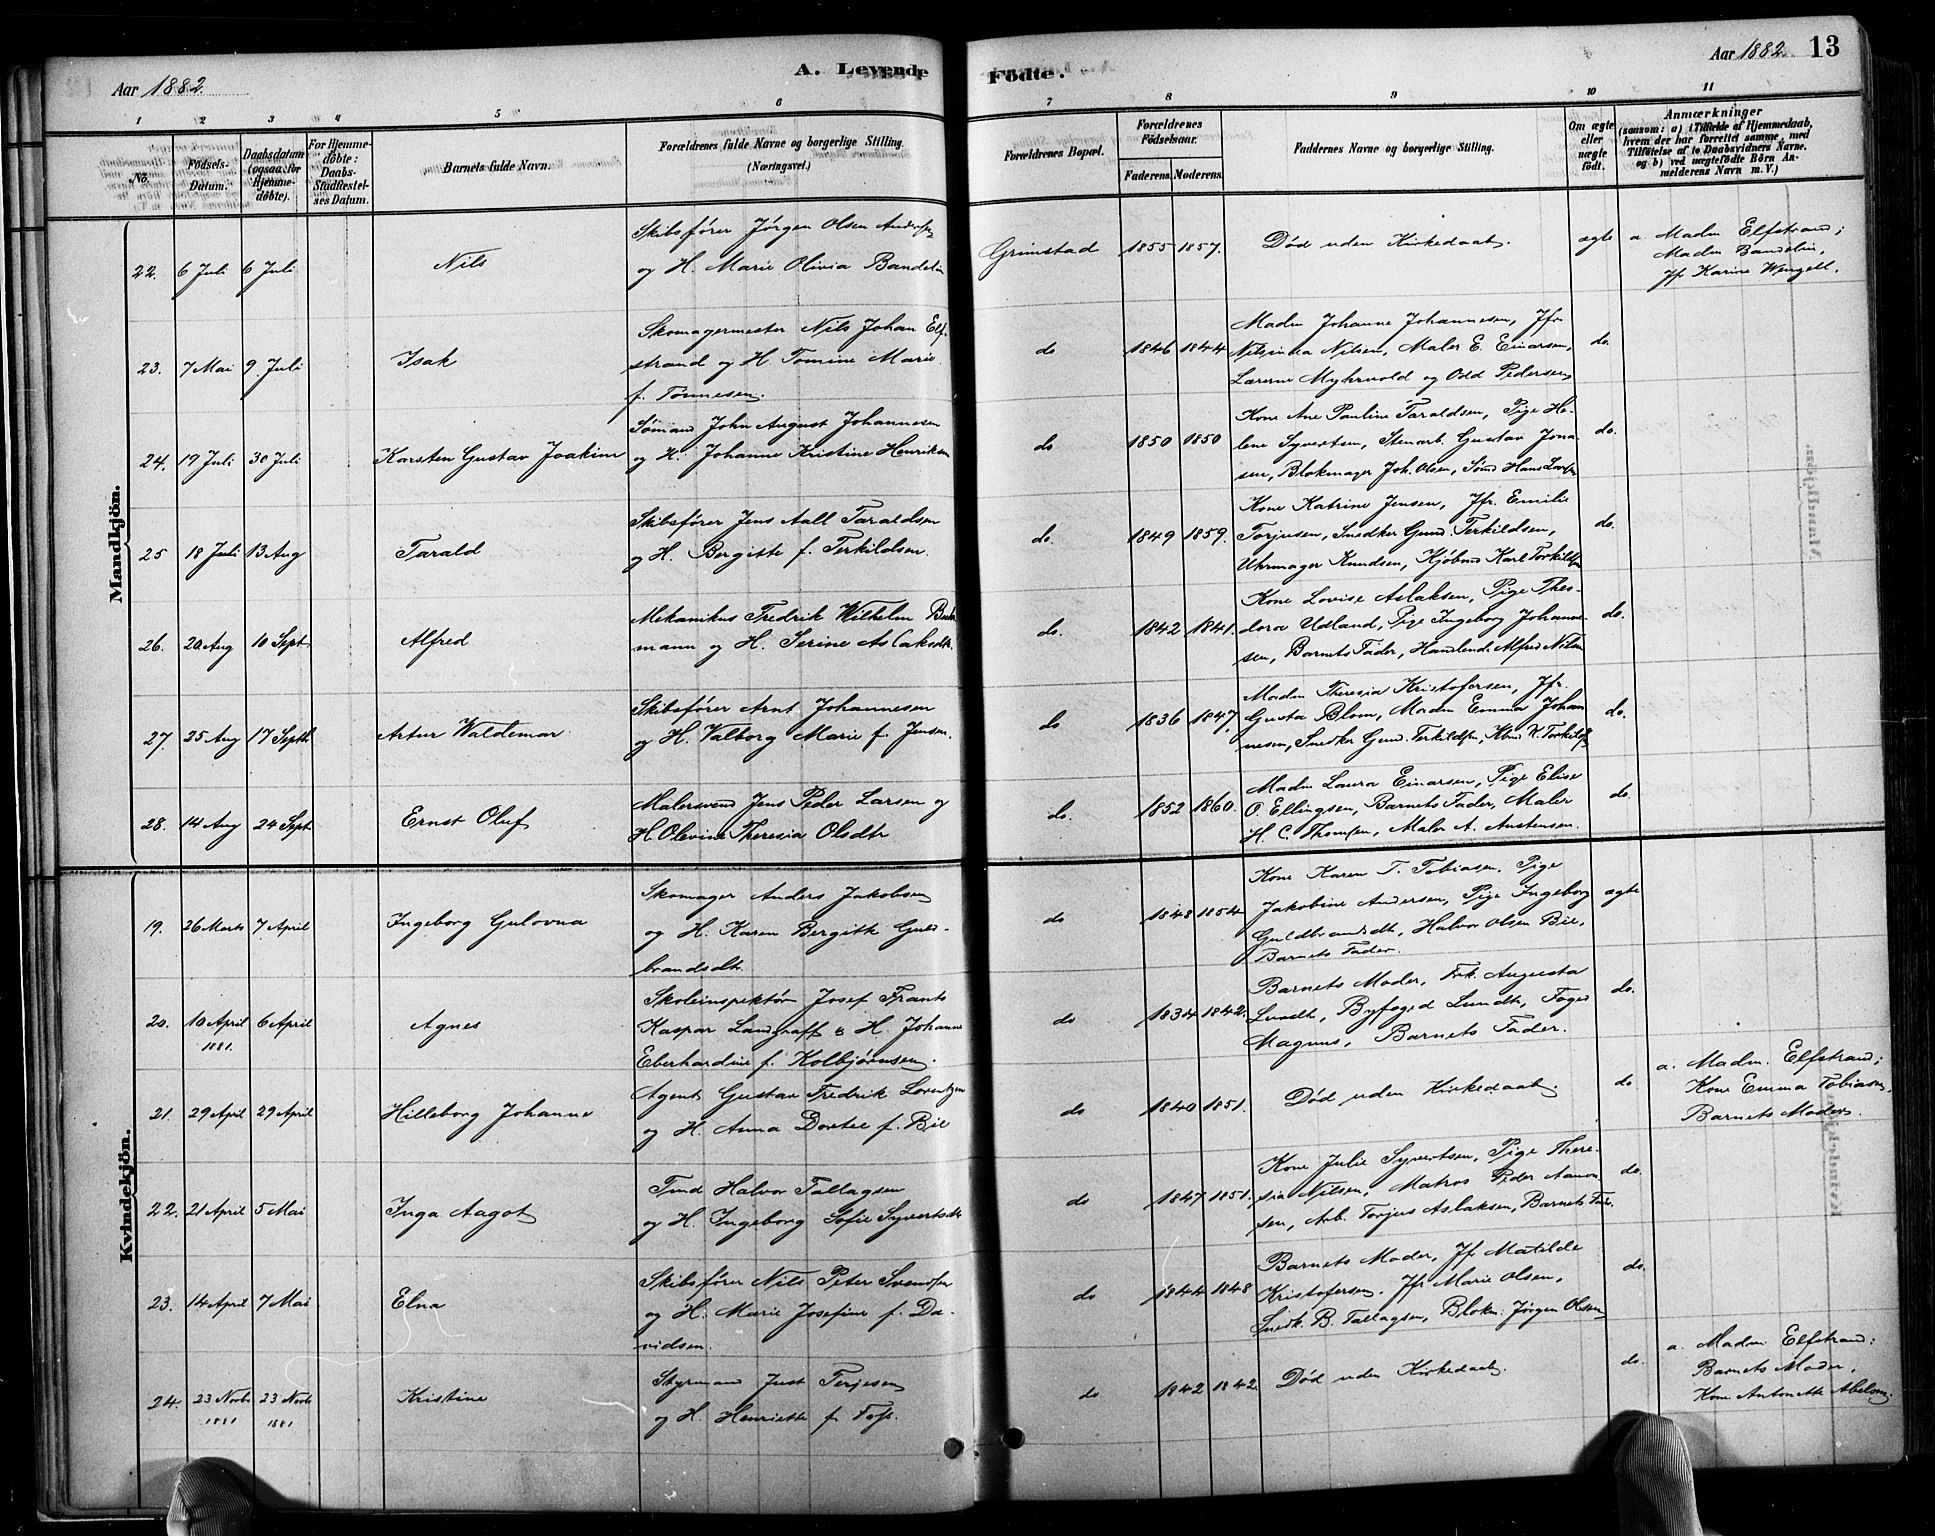 Aar 1882.
A. Levende
Födte.
Aar 1882.
13
1 2 3 4 5 6 7 8 9 10 11
No.
Födsels-Datum.
Daabsdatum (ogsaa for Hjemmedöbte).
For Hjemmedöbte: Daabs-Stadfæstelses Datum.
Barnets fulde Navn.
Forældrenes fulde Navne og borgerlige Stilling. (Næringsvei.)
Forældrenes Bopæl.
Forældrenes Födselsaar.
Faderens. Moderens.
Faddernes Navne og borgerlige Stilling.
Om ægte eller uægte födt.
Anmærkninger
(saasom: a) i Tilfælde af Hjemmedaab,
hvem der har forrettet samme, med
Tilföielse af to Daabsvidners Navne.
og b) ved uægtefödte Börn An-
melderens Navn m. V.)
Mandkjön.
22. 6 Juli 6 Juli Nils
Skibsfører Jørgen Olsen
og H. Marie Olivia Bandelin
Grimstad 1855 1857. Død uden Kirkedaab. ægte
a. Madm Elfstrand;
Madm Bandelin,
Jf Karine Wengell.
23. 7 Mai 9. Juli Isak
Skomagermester Nils Johan Elf-
strand og H Tomine Marie
f. Tønnesen.
do 1846 1844
Madm Johanne Johannesen, Jfr.
Nilsinna Nilsen, Maler E. Einarsen,
Lærerne Myhrvold og Odd Pedersen
do.
24. 19 Juli 30 Juli Karsten Gustav Joakim
Sømand John August Johannesen
og H. Johanne Kristine Henriksen
do 1850 1850
Kone Ane Pauline Taraldsen, Pige He-
lene Syvertsen, Stenarb. Gustav Jona-
sen, Blokmager Joh. Olsen, Sømd Hans
do.
25 18 Juli 13 Aug Tarald
Skibsfører Jens Aall Taraldsen
og H. Bergitte f. Terkildsen.
do. 1849 1859.
Kone Katrine Jensen, Jfr. Emilie
Torjusen, Snedker Gund. Terkildsen,
Uhrmager Knudsen, Kjøbmd Karl Torkildsen
do.
26. 20 Aug 10 Sept Alfred
Mekanikus Fredrik Wilhelm
mann og H. Serine Aslaksdtr.
do. 1842 1841.
Kone Lovise Aslaksen, Pige Theo-
dora Udland, Pige Ingeborg Johanne-
sen, Barnets Fader, Handlende Alfred Nilsen
do.
27. 25 Aug 17 Septb Artur Waldemar
Skibsfører Arnt Johannesen
og H. Valborg Marie f. Jensen.
do 1836 1847.
Madm Theresia Kristofersen, Jfr.
Gusta Blom, Madm Emma Johan
nesen, Snedker Gund. Terkildsen, Kbmd K. Torkildsen
do.
28. 14 Aug 24 Sept Ernst Oluf
Malersvend Jens Peder Larsen og
H. Olevine Theresia Olsdtr
do. 1852 1860.
Madm Laura Einarsen, Pige Elise
O. Ellingsen, Barnets Fader, Maler
H. C. Thomsen, Maler A. Austensen.
do.
Kvindekjön.
19. 26 Marts 7 April Ingeborg Gulovna
Skomager Anders Jakobsen
og H. Karen Bergitte Guld-
brandsdtr.
do 1848 1854
Kone Karen T. Tobiasen, Pige
Jakobine Andersen, Pige Ingeborg
Guldbrandsdtr, Halvor Olsen Bie,
Barnets Fader.
ægte
20. 10 April 1881. 6 April Agnes
Skoleinspektør Josef Frants
Kaspar Landgraff & H. Johanne
Eberhardine f. Kolbjørnsen.
do 1834 1842.
Barnets Moder, Frk. Augusta
Lundh, Byfoged Lundh, Foged
Magnus, Barnets Fader.
do.
21. 29 April 29 April Hilleborg Johanne
Agent Gustav Fredrik Lorentzen
og H. Anna Dortee f. Bie
do 1840 1851. Død uden Kirkedaab. do
a. Madm. Elfstrand;
Kone Emma Tobiasen,
Barnets Moder.
22. 21 April 5 Mai Inga Aagot
Tmd Halvor Tallagsen
og H. Ingeborg Sofie Syvertsdtr
do 1847 1851.
Kone Julie Syvertsen, Pige There-
sia Nilsen, Matros Peder Aanon-
sen, Arb. Torjus Aslaksen, Barnets Fader.
do.
23. 14 April 7 Mai Elna
Skibsfører Nils Peter Svendsen
og H. Marie Josefine f. Da-
vidsen.
do 1844 1848
Barnets Moder, Jf Matilde
Kristofersen, Jfr Marie Olsen,
Snedk. B. Tallagsen, Blokm. Jørgen Olsen
do.
24. 23 Novb 1881 23 Novb 1881 Kristine
Styrmand Just Terjesen
og H. Henriette f. Foss.
do 1842 1842. Død uden Kirkedaab. do.
a. Madm Elfstrand;
Barnets Moder,
Kone Antonette Abelson